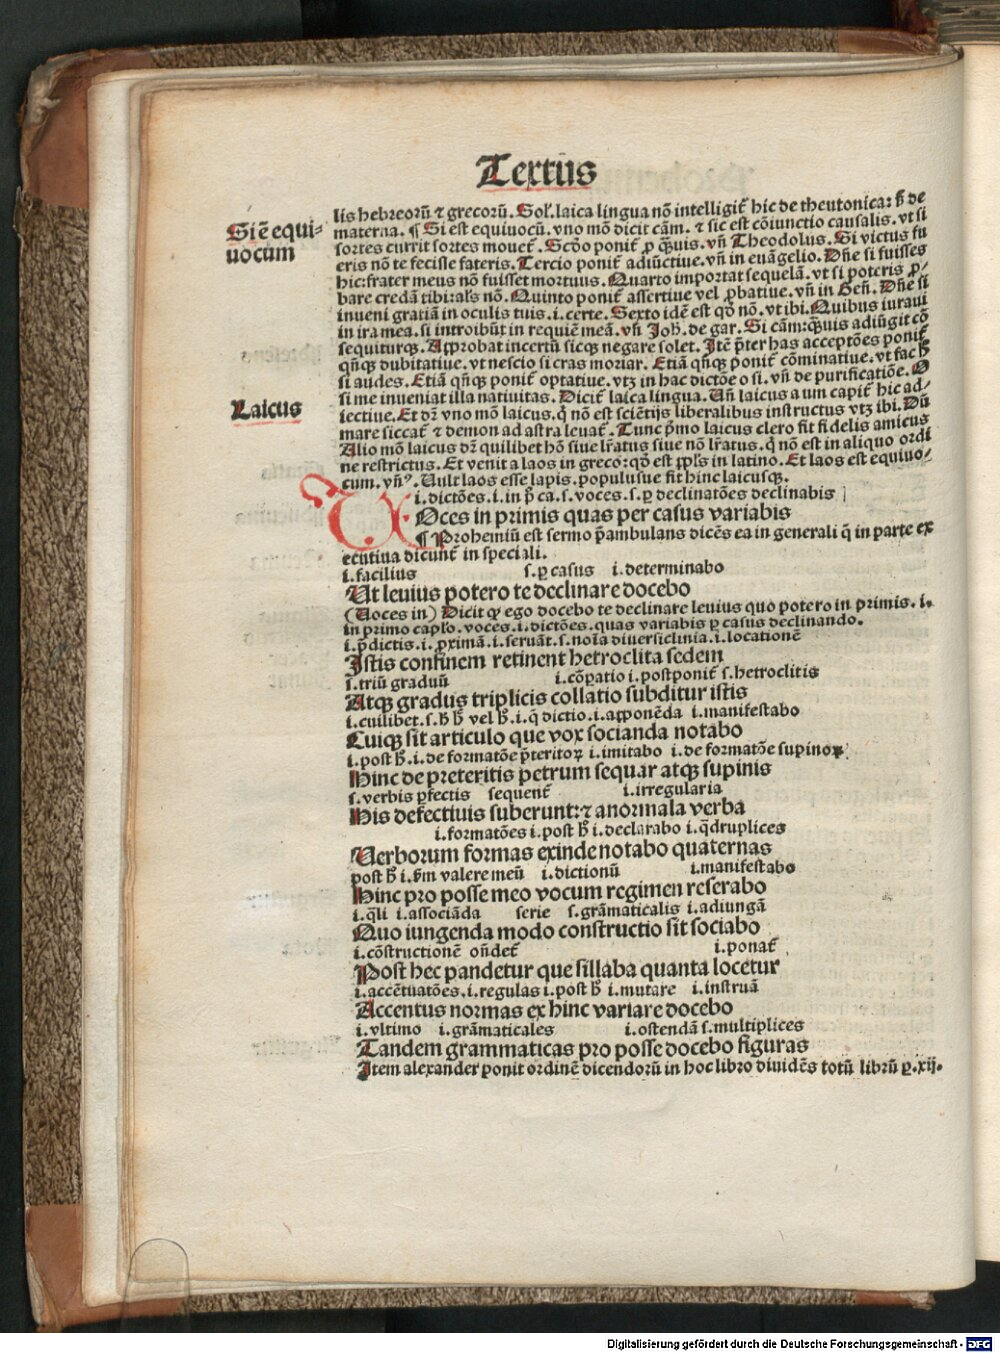 Textus
lis hebreorū ⁊ grecorū. Sol. laica lingua nō intelligit̄ hic de theutonica: s̄ de
Si ē equi-
uocum
materna. ¶ Si est equiuocū. vno mō dicit cām. ⁊ sic est cōiunctio causalis. vt si
sortes currit sortes mouet̄. Scd̄o ponit̄ ꝓ q̄uis. vn̄ Theodolus. Si victus fu
eris nō te fecisse fateris. Tercio ponit̄ adiūctiue. vn̄ in euāgelio. Dn̄e si fuisses
hic: frater meus nō fuisset mortuus. Quarto importat sequelā. vt si poteris ꝓ-
bare credā tibi: als nō. Quinto ponit̄ assertiue vel ꝓbatiue. vn̄ in Gen̄. Dn̄e si
inueni gratiā in oculis tuis. i. certe. Sexto idē est qd̄ nō. vt ibi. Quibus iuraui
in ira mea. si introibūt in requiē meā. vn̄ Joh. de gar. Si cām: q̄uis adiūgit cō
sequiturqꝫ. Approbat incertū sicqꝫ negare solet. Itē p̄ter has acceptōes ponit̄
qn̄qꝫ dubitatiue. vt nescio si cras moriar. Etiā qn̄qꝫ ponit̄ cōminatiue. vt fac h̄
si audes. Etiā qn̄qꝫ ponit̄ optatiue. vtꝫ in hac dictōe o si. vn̄ de purificatiōe. O
si me inueniat illa natiuitas. Dicit̄ laica lingua. Vn̄ laicus a um capit̄ hic ad-
Laicus
iectiue. Et dr̄ vno mō laicus. q̄ nō est sciētijs liberalibus instructus vtꝫ ibi. Dū
mare siccat̄ ⁊ demon ad astra leuat̄. Tunc p̄mo laicus clero fit fidelis amicus
Alio mō laicus dꝛ quilibet hō siue lr̄atus siue nō lr̄atus. q̄ nō est in aliquo ordi
ne restrictus. Et venit a laos in greco: qd̄ est ppl̄s in latino. Et laos est equiuo-
cum. vn̄ꝰ. Uult laos esse lapis. populusue fit hinc laicusqꝫ.
i. dictōes. i. in p̄ ca. s. voces. s. ꝑ declinatōes declinabis
VOces in primis quas per casus variabis
¶ Prohemiū est sermo p̄ambulans dicēs ea in generali q̄ in parte ex
ecutiua dicunt̄ in speciali.
i. facilius s. ꝑ casus i. determinabo
Ut leuius potero te declinare docebo
(Uoces in) Dicit qꝫ ego docebo te declinare leuius quo potero in primis. i.
in primo capl̓o. voces. i. dictōes. quas variabis ꝑ casus declinando.
i. p̄dictis. i. ꝓximā. i. seruāt. s. noīa diuersiclinia. i. locationē
Istis confinem retinent hetroclita sedem
s. triū graduū i. cōꝑatio i. postponit̄ s. hetroclitis
Atqꝫ gradus triplicis collatio subditur istis
i. cuilibet. s. h̄ h̄ vel h̄. i. q̄ dictio. i. apponēda i. manifestabo
Cuiqꝫ sit articulo que vox socianda notabo
i. post h̄. i. de formatōe p̄teritoꝝ i. imitabo i. de formatōe supinoꝝ
Hinc de preteritis petrum sequar atqꝫ supinis
s. verbis ꝑfectis sequent̄ i. irregularia
His defectiuis suberunt: ⁊ anormala verba
i. formatōes i. post h̄ i. declarabo i. q̄druplices
Uerborum formas exinde notabo quaternas
post h̄ i. s̄m valere meū i. dictionū i. manifestabo
Hinc pro posse meo vocum regimen reserabo
i. q̄li i. associāda serie s. grāmaticalis i. adiungā
Quo iungenda modo constructio sit sociabo
i. cōstructionē on̄det̄ i. ponat̄
Post hec pandetur que sillaba quanta locetur
i. accētuatōes. i. regulas i. post h̄ i. mutare i. instruā
Accentus normas ex hinc variare docebo
i. vltimo i. grāmaticales i. ostendā s. multiplices
Tandem grammaticas pro posse docebo figuras
Item alexander ponit ordinē dicendorū in hoc libro diuidēs totū librū ꝑ. xij.
Digitalisierung gefördert durch die Deutsche Forschungsgemeinschaft - DFG